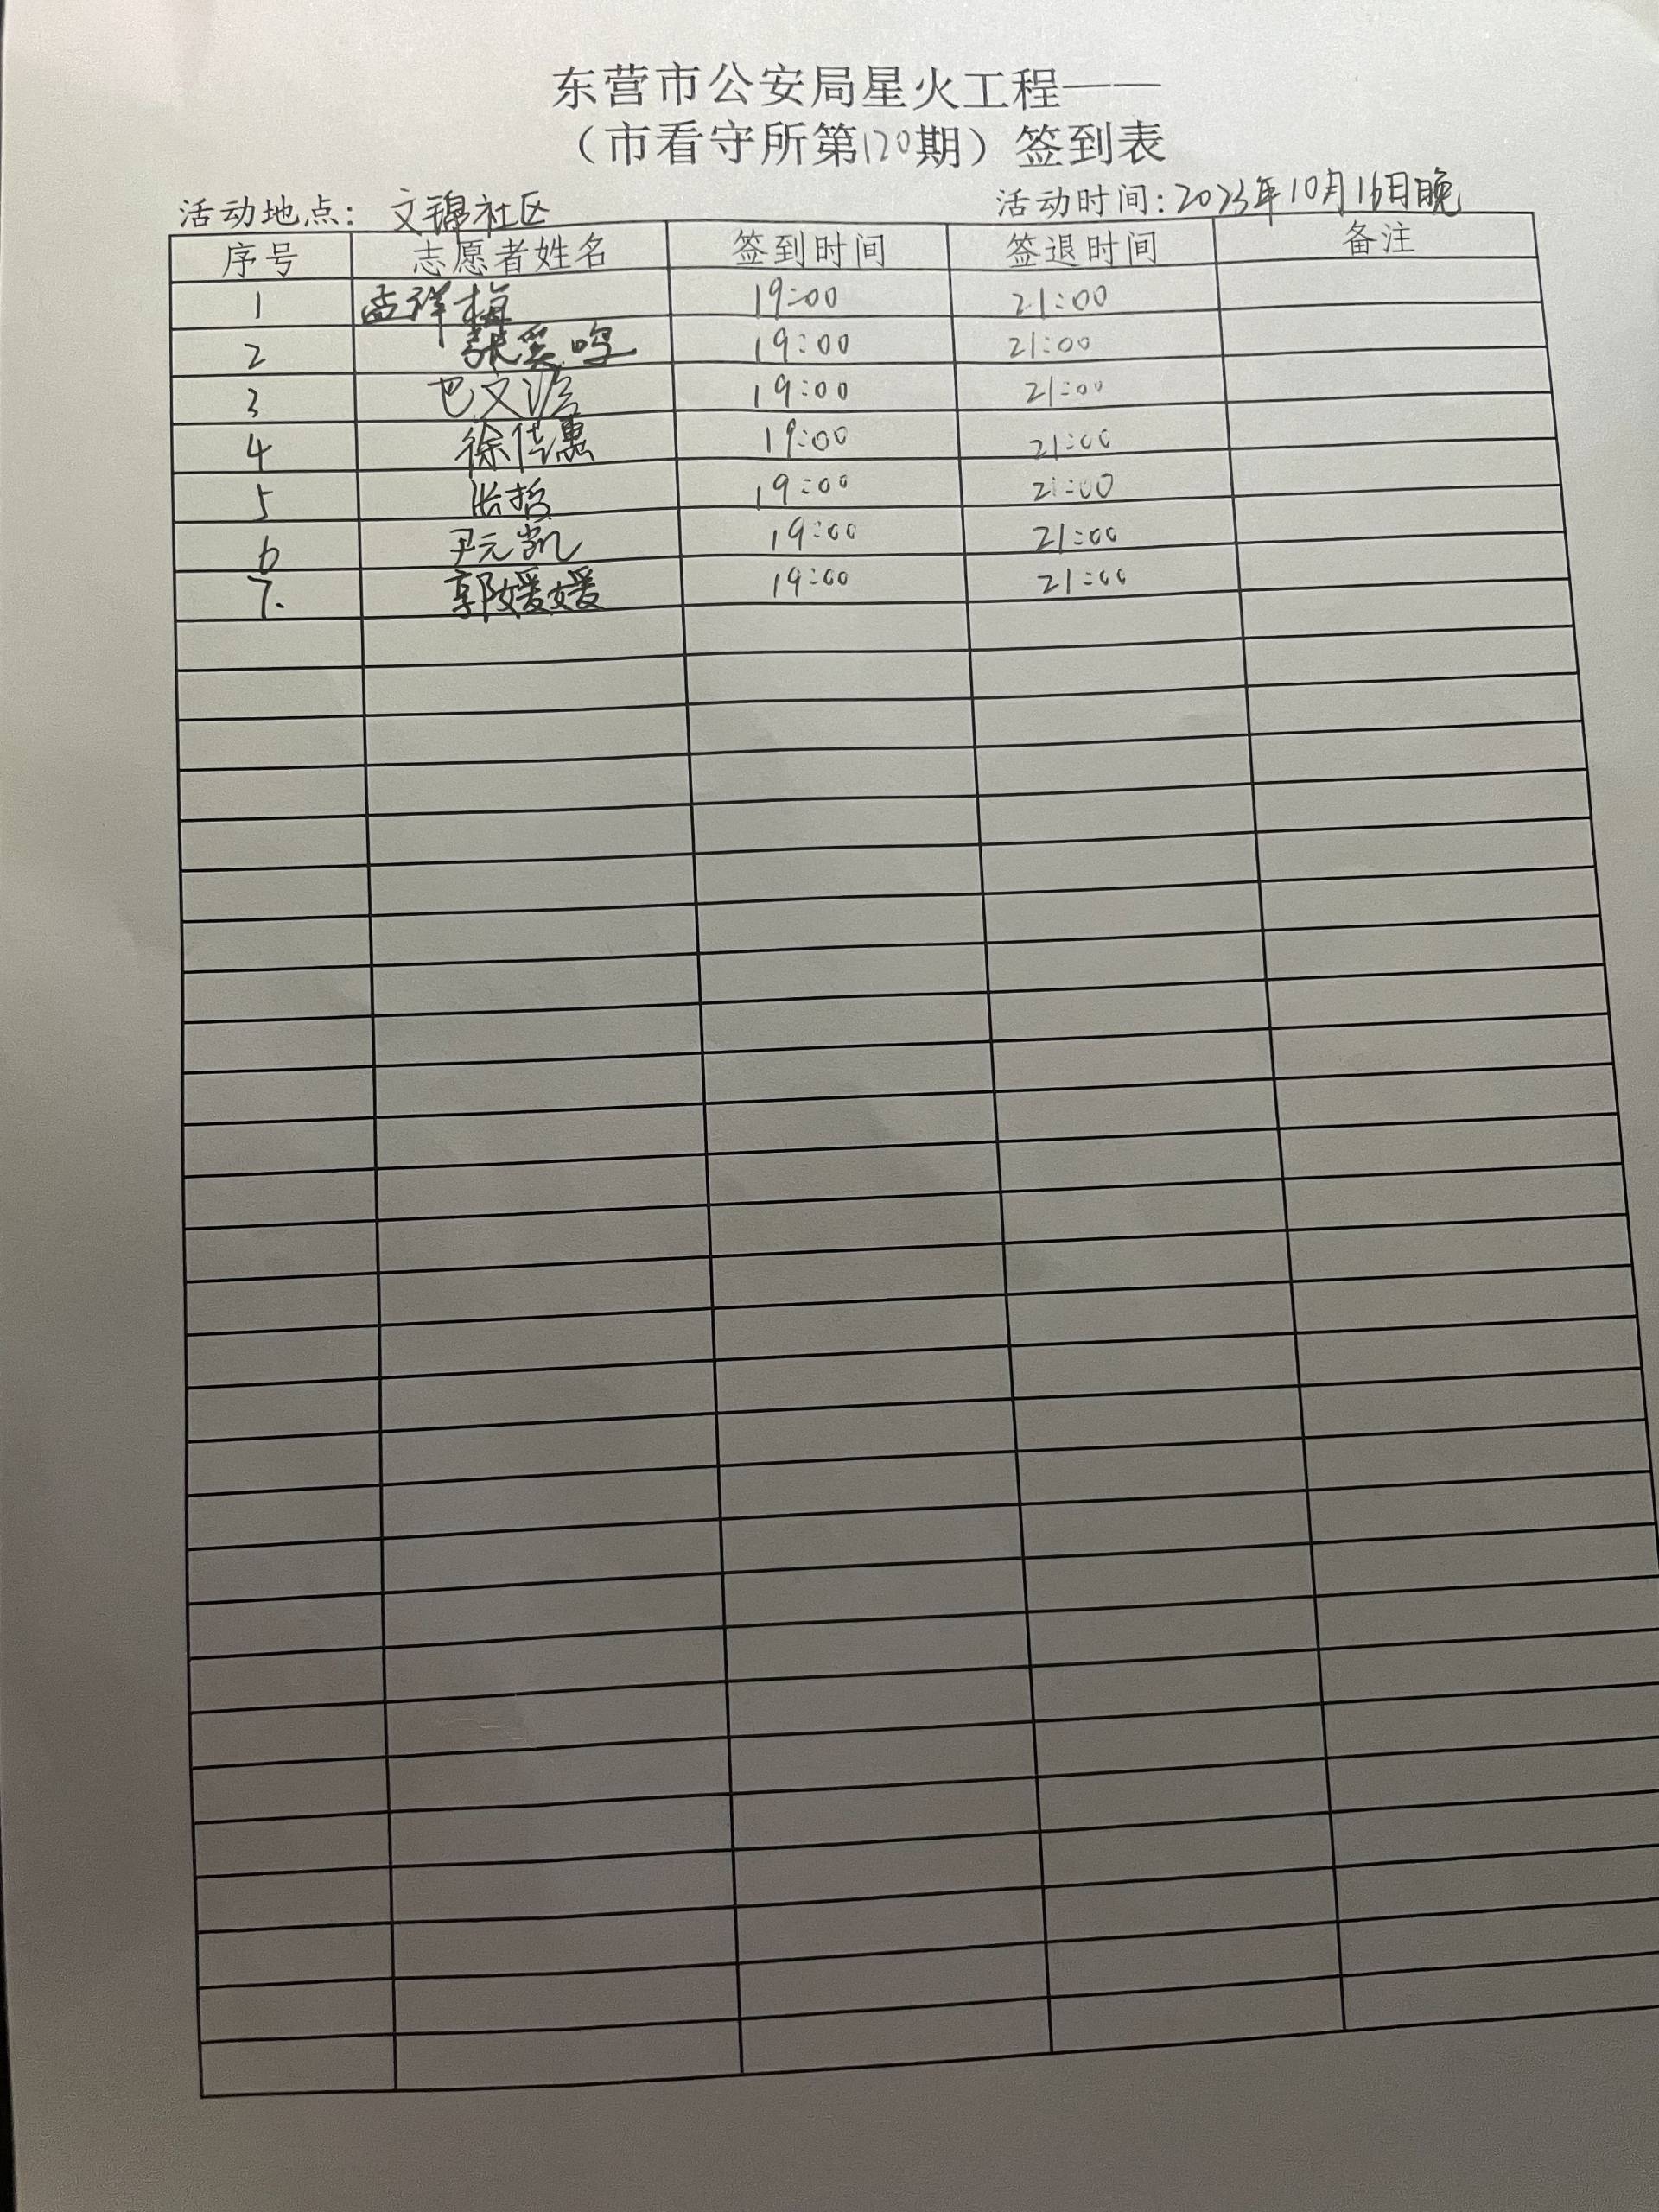 东营市公安局星火工程——
（市看守所第120期）签到表
活动地点: 文锦社区 活动时间: 2023年10月16日晚
序号 志愿者姓名 签到时间 签退时间 备注
1 孟祥梅 19:00 21:00
2 张 19:00 21:00
3 巴文 19:00 21:00
4 徐佳惠 19:00 21:00
5 哲 19:00 21:00
6 尹元凯 19:00 21:00
7. 郭媛媛 19:00 21:00